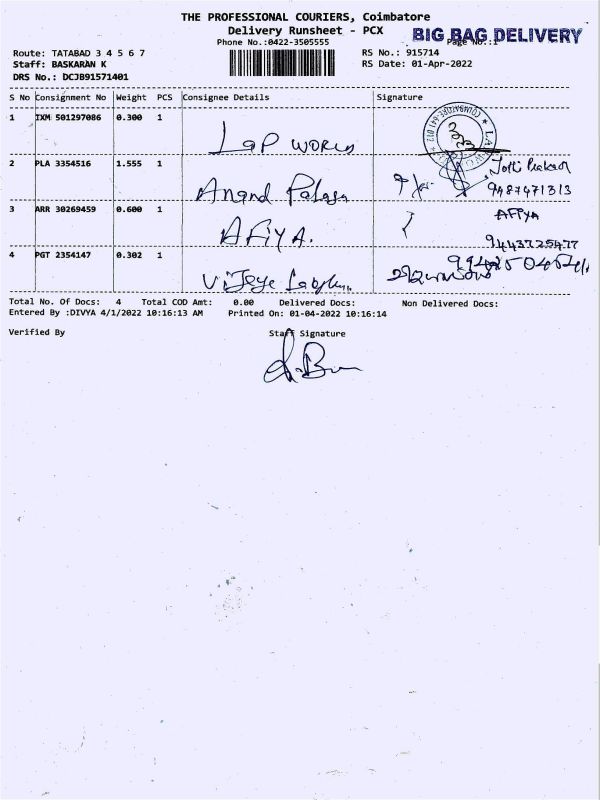 THE PROFESSIONAL COURIERS, Coimbatore
Delivery Runsheet - PCX
BIG BAG DELIVERY
Phone No.:0422-3505555
Page No.:1
Route: TATABAD 3 4 5 6 7
RS No.: 915714
Staff: BASKARAN K
RS Date: 01-Apr-2022
DRS No.: DCJB91571401
S No Consignment No Weight PCS Consignee Details Signature
1 IXM 501297086 0.300 1
Lap WORLD
2 PLA 3354516 1.555 1
Anand
9487471313
3 ARR 30269459 0.600 1
AFIYA.
AFIYA
9443725477
4 PGT 2354147 0.302 1
Total No. Of Docs: 4 Total COD Amt: 0.00 Delivered Docs: Non Delivered Docs:
Entered By :DIVYA 4/1/2022 10:16:13 AM Printed On: 01-04-2022 10:16:14
Verified By
Staff Signature